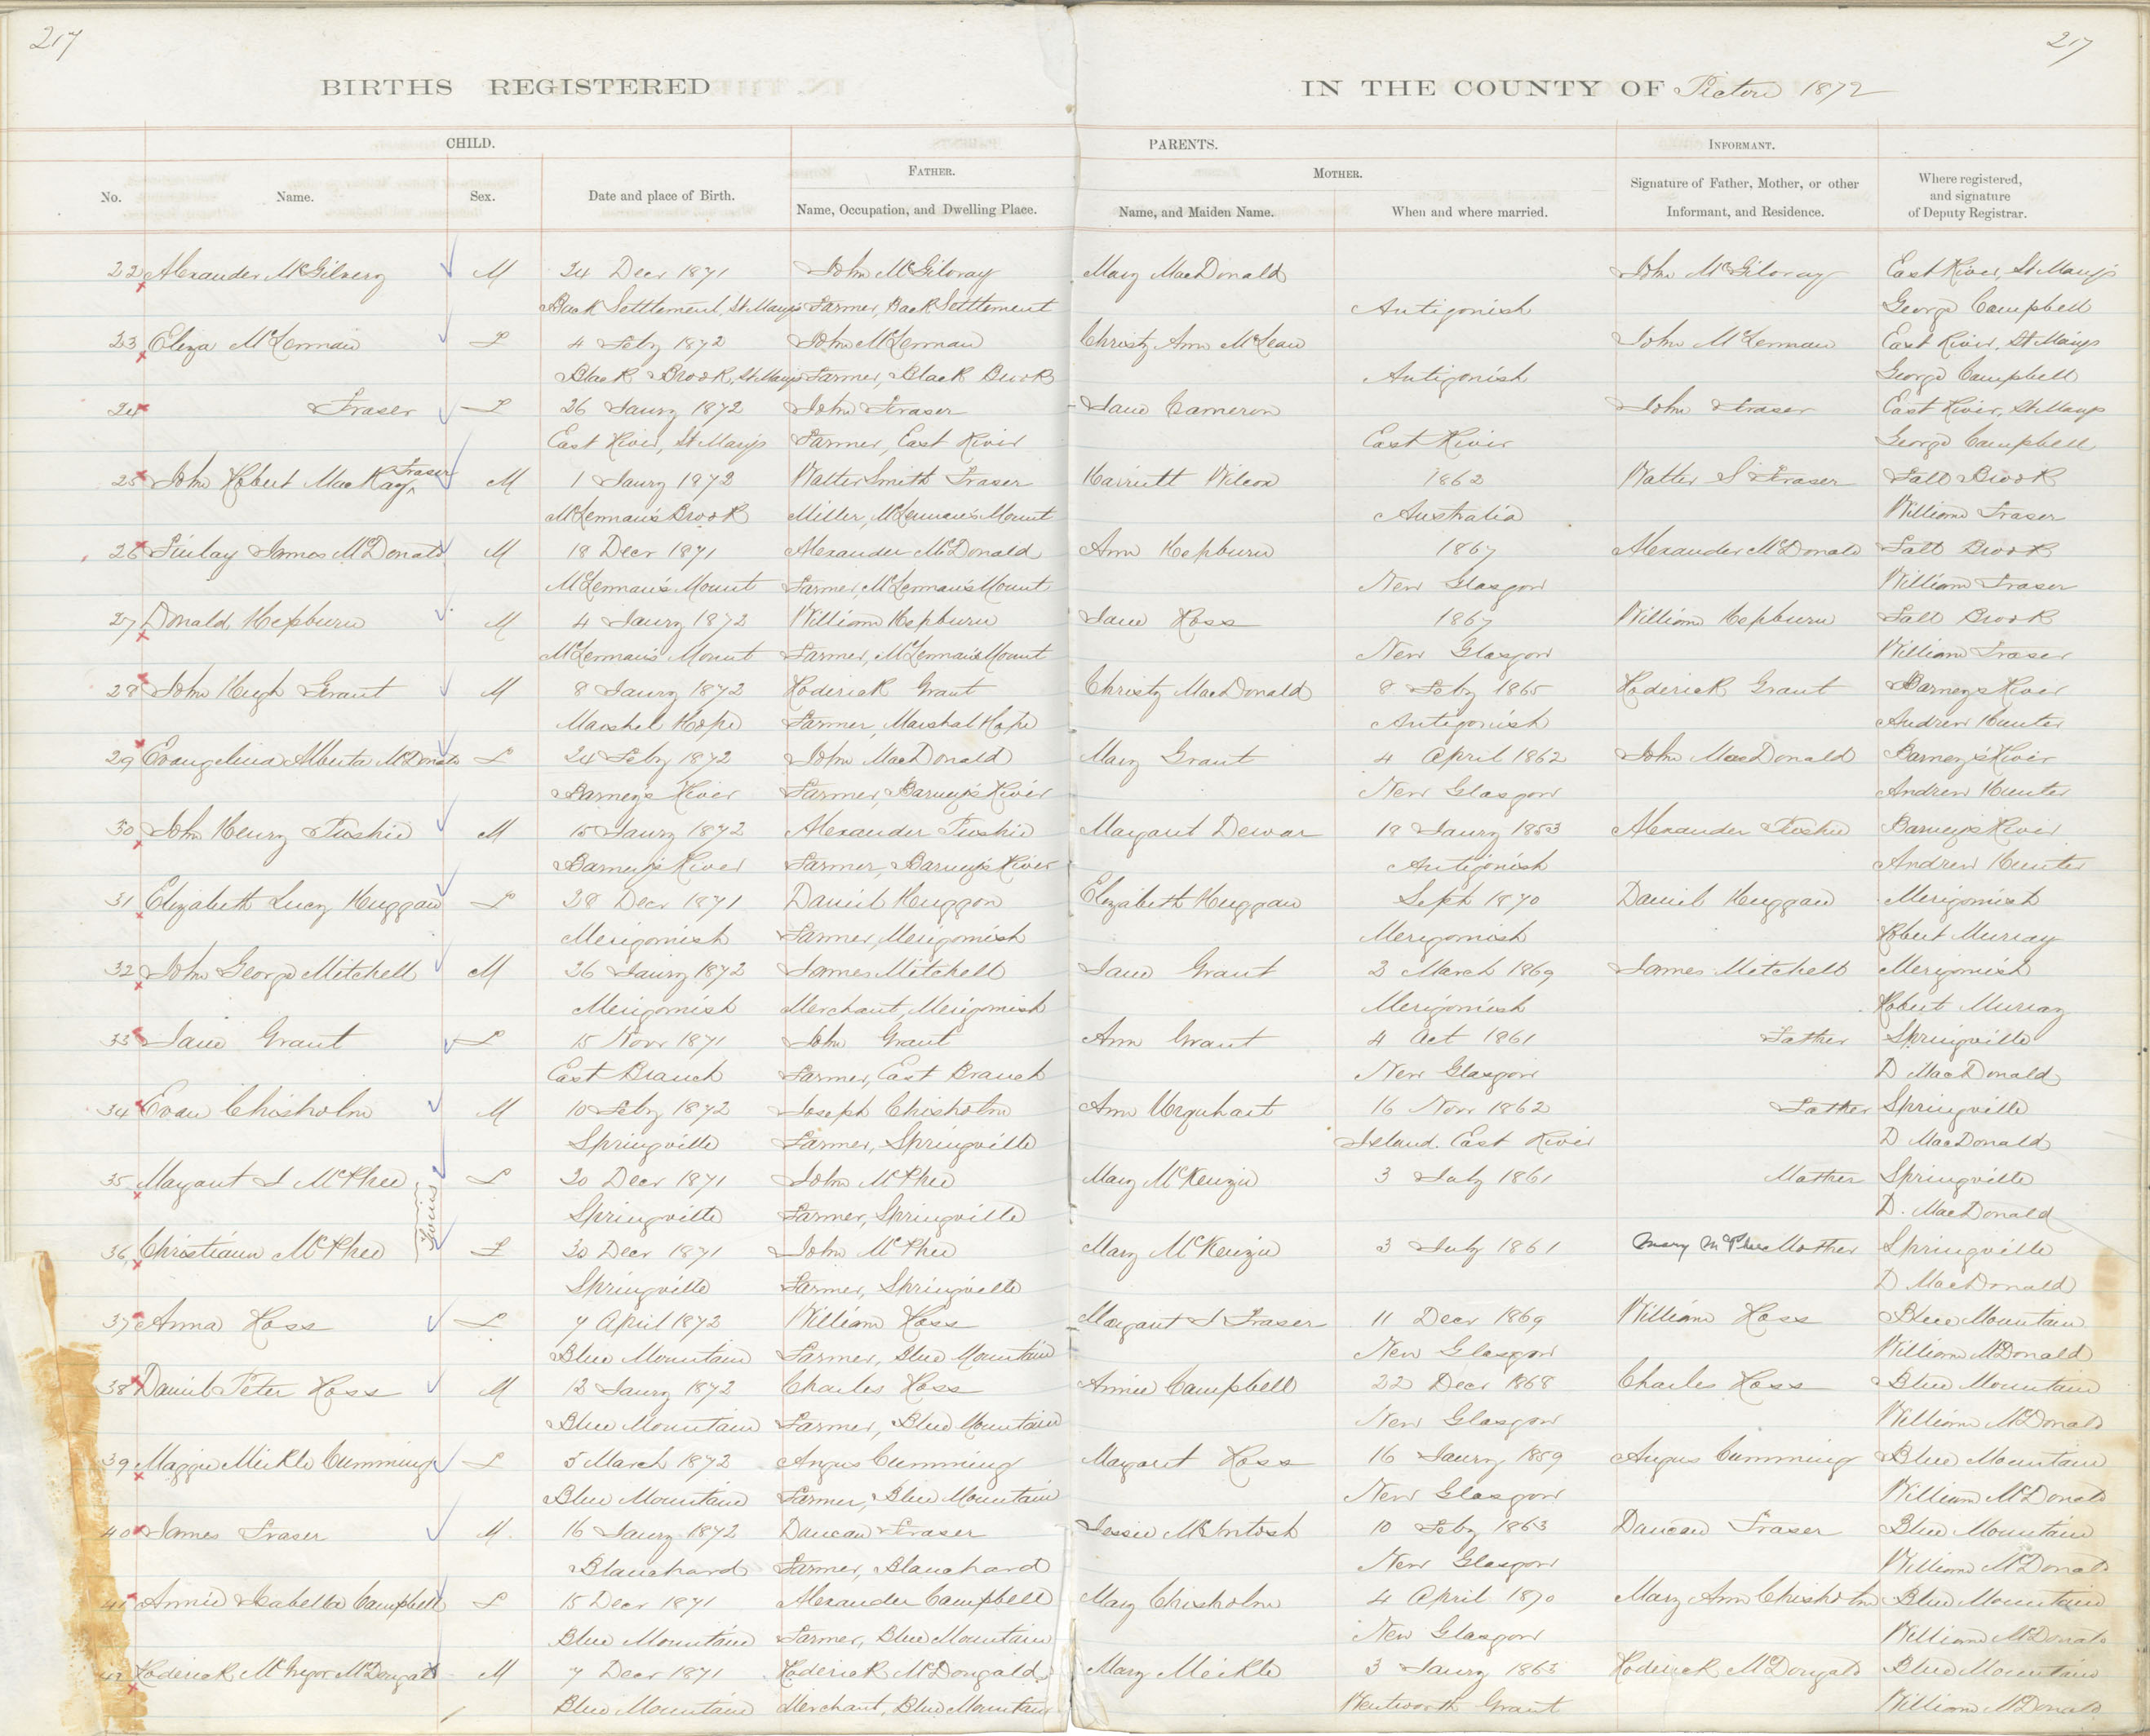 217 217
BIRTHS REGISTERED IN THE COUNTY OF Pictou 1872
CHILD. PARENTS. INFORMANT.
FATHER. MOTHER.
No. Name. Sex. Date and place of Birth. Name, Occupation, and Dwelling Place. Name, and Maiden Name. When and where married. Signature of Father, Mother, or other Informant, and Residence. Where registered, and signature of Deputy Registrar.
22 Alexander McGilvery M 24 Decr 1871 John McGilvray Mary MacDonald John McGilvray East River, St Mary's
Back Settlement, St Mary's Farmer, Back Settlement Antigonish George Campbell
23 Eliza McLennan F 4 Feby 1872 John McLennan Christy Ann McLean John McLennan East River, St Mary's
Black Brook, St Mary's Farmer, Black Brook Antigonish George Campbell
24 Fraser F 26 Jaury 1872 John Fraser Jane Cameron John Fraser East River, St Mary's
East River, St Mary's Farmer, East River East River George Campbell
25 John Robert MacKay Fraser M 1 Jaury 1872 Walter Smith Fraser Harriett Wilcox 1862 Walter S Fraser Fall Brook
McLennan's Brook Miller, McLennan's Mount Australia William Fraser
26 Finlay James McDonald M 18 Decr 1871 Alexander McDonald Ann Hepburn 1867 Alexander McDonald Fall Brook
McLennan's Mount Farmer, McLennan's Mount New Glasgow William Fraser
27 Donald Hepburn M 4 Jaury 1872 William Hepburn Jane Ross 1867 William Hepburn Fall Brook
McLennan's Mount Farmer, McLennan's Mount New Glasgow William Fraser
28 John Hugh Grant M 8 Jaury 1872 Roderick Grant Christy MacDonald 8 Feby 1865 Roderick Grant Barney's River
Marshel Hope Farmer, Marshal Hope Antigonish Andrew Hunter
29 Evangelina Alberta McDonald F 24 Feby 1872 John MacDonald Mary Grant 4 April 1862 John MacDonald Barney's River
Barney's River Farmer, Barney's River New Glasgow Andrew Hunter
30 John Henry M 15 Jaury 1872 Alexander Margaret Dewar 18 Jaury 1853 Alexander Barney's River
Barney's River Farmer, Barney's River Antigonish Andrew Hunter
31 Elizabeth Lucy Huggan F 28 Decr 1871 Daniel Huggon Elizabeth Huggan Sept 1870 Daniel Huggan Merigomish
Merigomish Farmer, Merigomish Merigomish Robert Murray
32 John George Mitchell M 26 Jaury 1872 James Mitchell Jane Grant 2 March 1869 James Mitchell Merigomish
Merigomish Merchant, Merigomish Merigomish Robert Murray
33 Jane Grant F 15 Novr 1871 John Grant Ann Grant 4 Oct 1861 Father Springville
East Branch Farmer, East Branch New Glasgow D MacDonald
34 Evan Chisholm M 10 Feby 1872 Joseph Chisholm Ann Urquhart 16 Novr 1862 Father Springville
Springville Farmer, Springville Island. East River D MacDonald
35 Margaret J McPhee F 20 Decr 1871 John McPhee Mary McKenzie 3 July 1861 Mother Springville
Twins
Springville Farmer, Springville D. MacDonald
36 Christiann McPhee F 20 Decr 1871 John McPhee Mary McKenzie 3 July 1861 Mary McPhee Mother Springville
Springville Farmer, Springville D MacDonald
37 Anna Ross F 7 April 1872 William Ross Margaret J Fraser 11 Decr 1869 William Ross Blue Mountain
Blue Mountain Farmer, Blue Mountain New Glasgow William McDonald
38 Daniel Peter Ross M 12 Jaury 1872 Charles Ross Annie Campbell 22 Decr 1868 Charles Ross Blue Mountain
Blue Mountain Farmer, Blue Mountain New Glasgow William McDonald
39 Maggie Meikle Cumming F 5 March 1872 Angus Cumming Margaret Ross 16 Jaury 1859 Angus Cumming Blue Mountain
Blue Mountain Farmer, Blue Mountain New Glasgow William McDonald
40 James Fraser M. 16 Jaury 1872 Duncan Fraser Jessie McIntosh 10 Feby 1863 Duncan Fraser Blue Mountain
Blanchard Farmer, Blanchard New Glasgow William McDonald
41 Annie Isabella Campbell F 15 Decr 1871 Alexander Campbell Mary Chisholm 4 April 1870 Mary Ann Chisholm Blue Mountain
Blue Mountain Farmer, Blue Mountain New Glasgow William McDonald
42 Roderick McGregor McDougald M 7 Decr 1871 Roderick McDougald Mary Meikle 3 Jaury 1863 Roderick McDougald Blue Mountain
Blue Mountain Merchant, Blue Mountain Wentworth Grant William McDonald